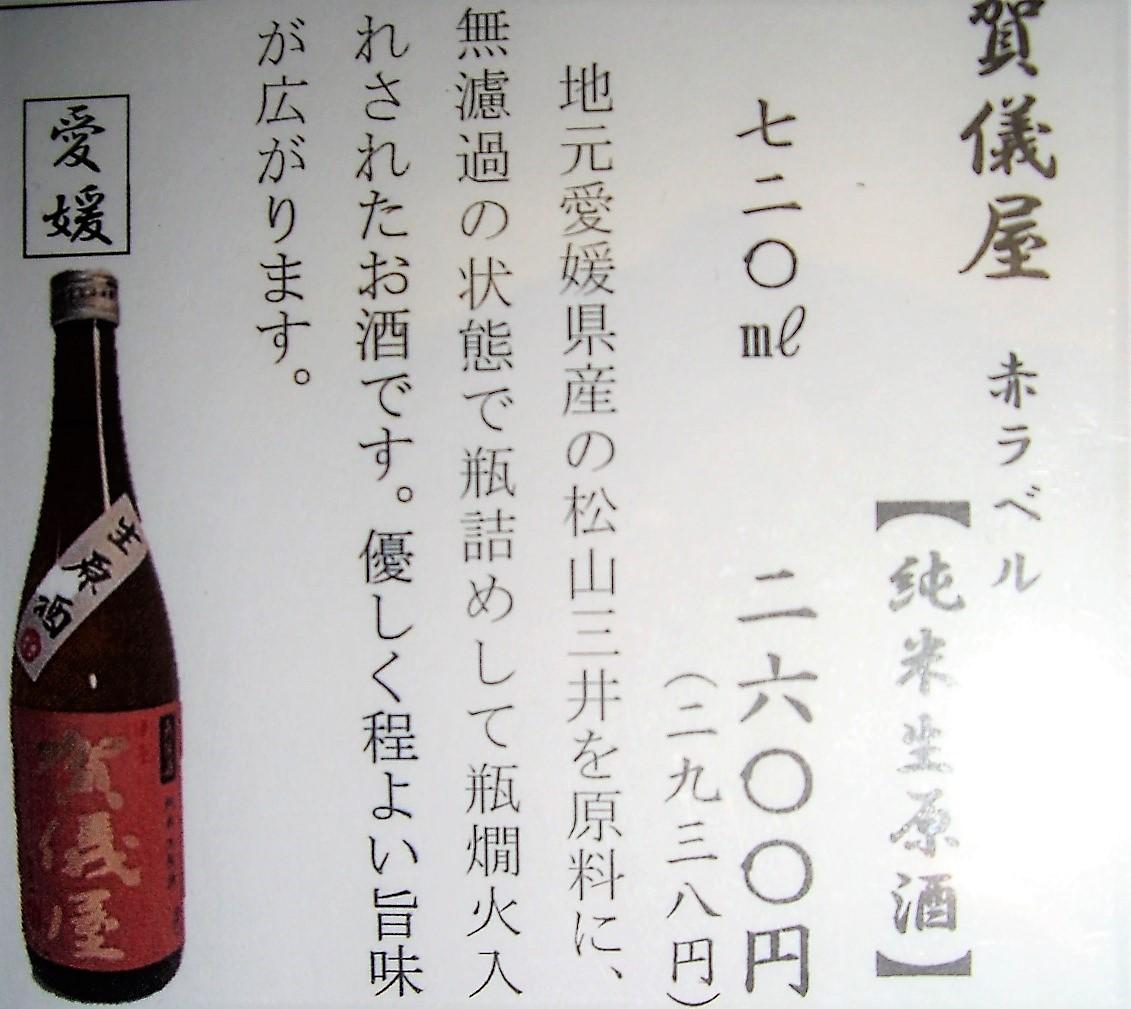 賀儀屋 赤ラベル
【純米生原酒】
七二〇㎖ 二六〇〇円
（二九三八円）
地元愛媛県産の松山三井を原料に、
無濾過の状態で瓶詰めして瓶燗火入
れされたお酒です。優しく程よい旨味
が広がります。
愛媛
生原酒
賀儀屋